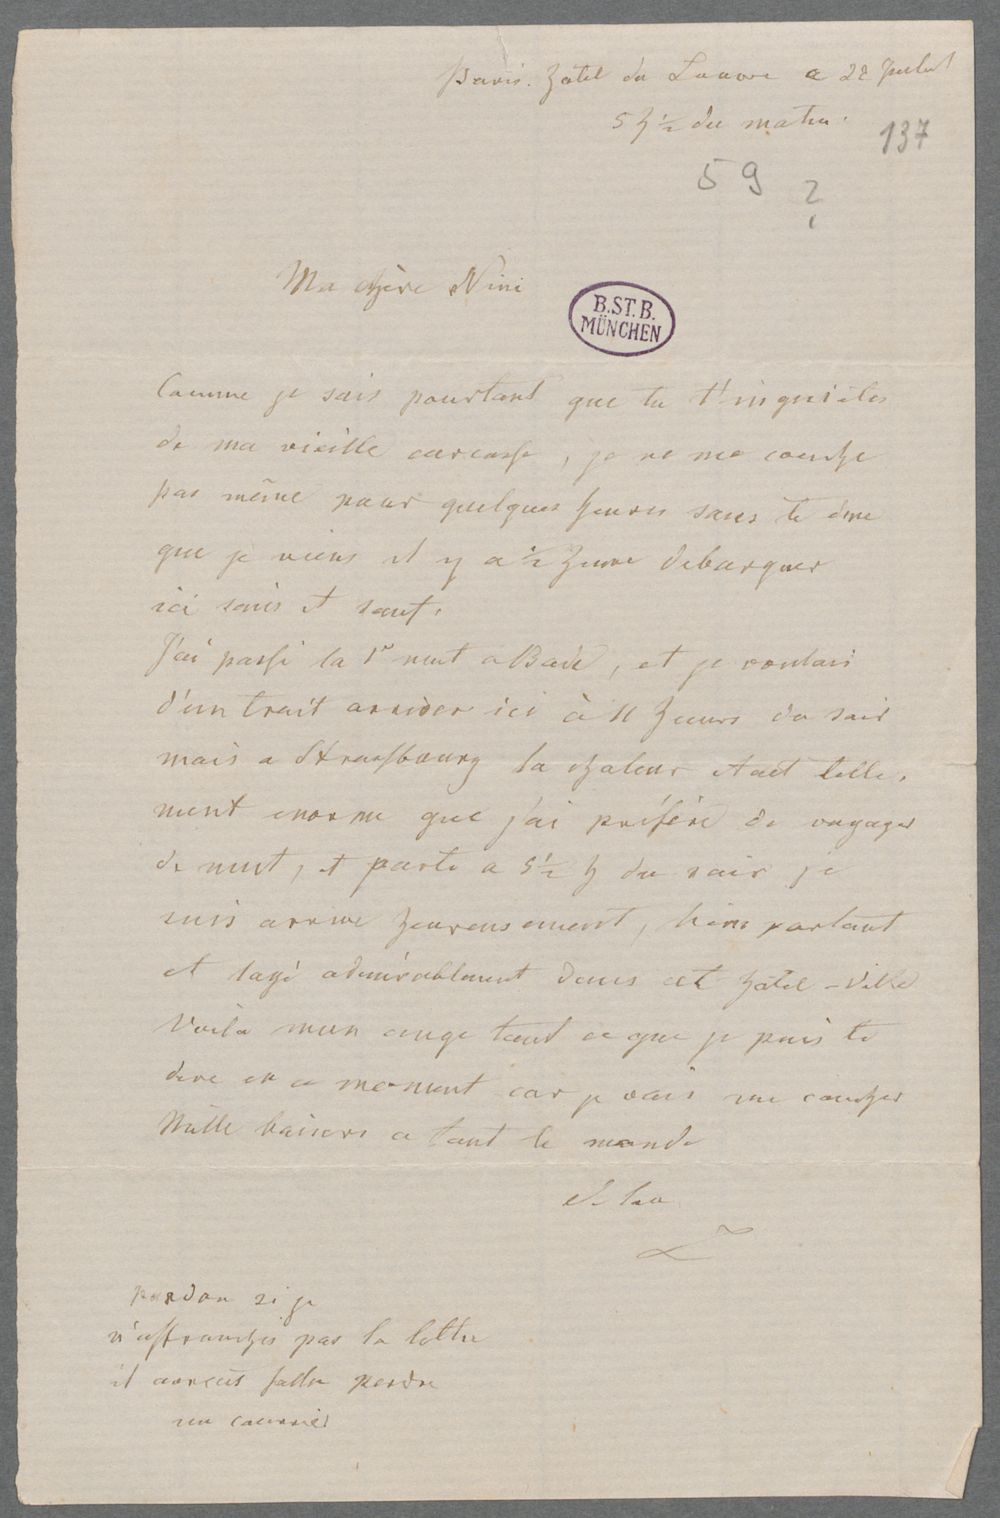 Paris. Hôtel du Louvre a 22 Juillet
5 h ½ du matin.
137
59 ?
Ma chère Nini
B.ST.B.
MÜNCHEN
Comme je sais pourtant que tu t'inquiètes
de ma vieille carcasse, je ne me couche
pas même pour quelques heures sans te dire
que je viens il y a ½ heure debarquer
ici sains et sauf.
J'ai passé la 1r nuit a Bade, et je voulais
d'un trait arriver ici à 11 heures du soir
mais a Strassbourg la chaleur etait telle-
ment enorme que j'ai préféré de voyager
de nuit, et parti a 5½ h du soir je
suis arrivé heureusement, bien portant
et logé admirablement dans cet hôtel-ville
Voila mon ange tout ce que je puis te
dire en ce moment car je vais me coucher
Mille baisers a tout le monde
pardon si je
n'affranchis pas la lettre
il auroit fallu perdre
un courrier